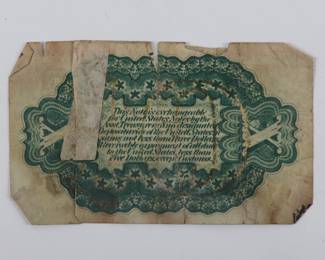 This Note is exchangeable
for United States Notes by the
Asst. Treasurers and designated
Depositaries of the United States,
in sums not less than Three Dollars.
Receivable in payment of all dues
to the United States, less than
Five Dollars, except Customs.